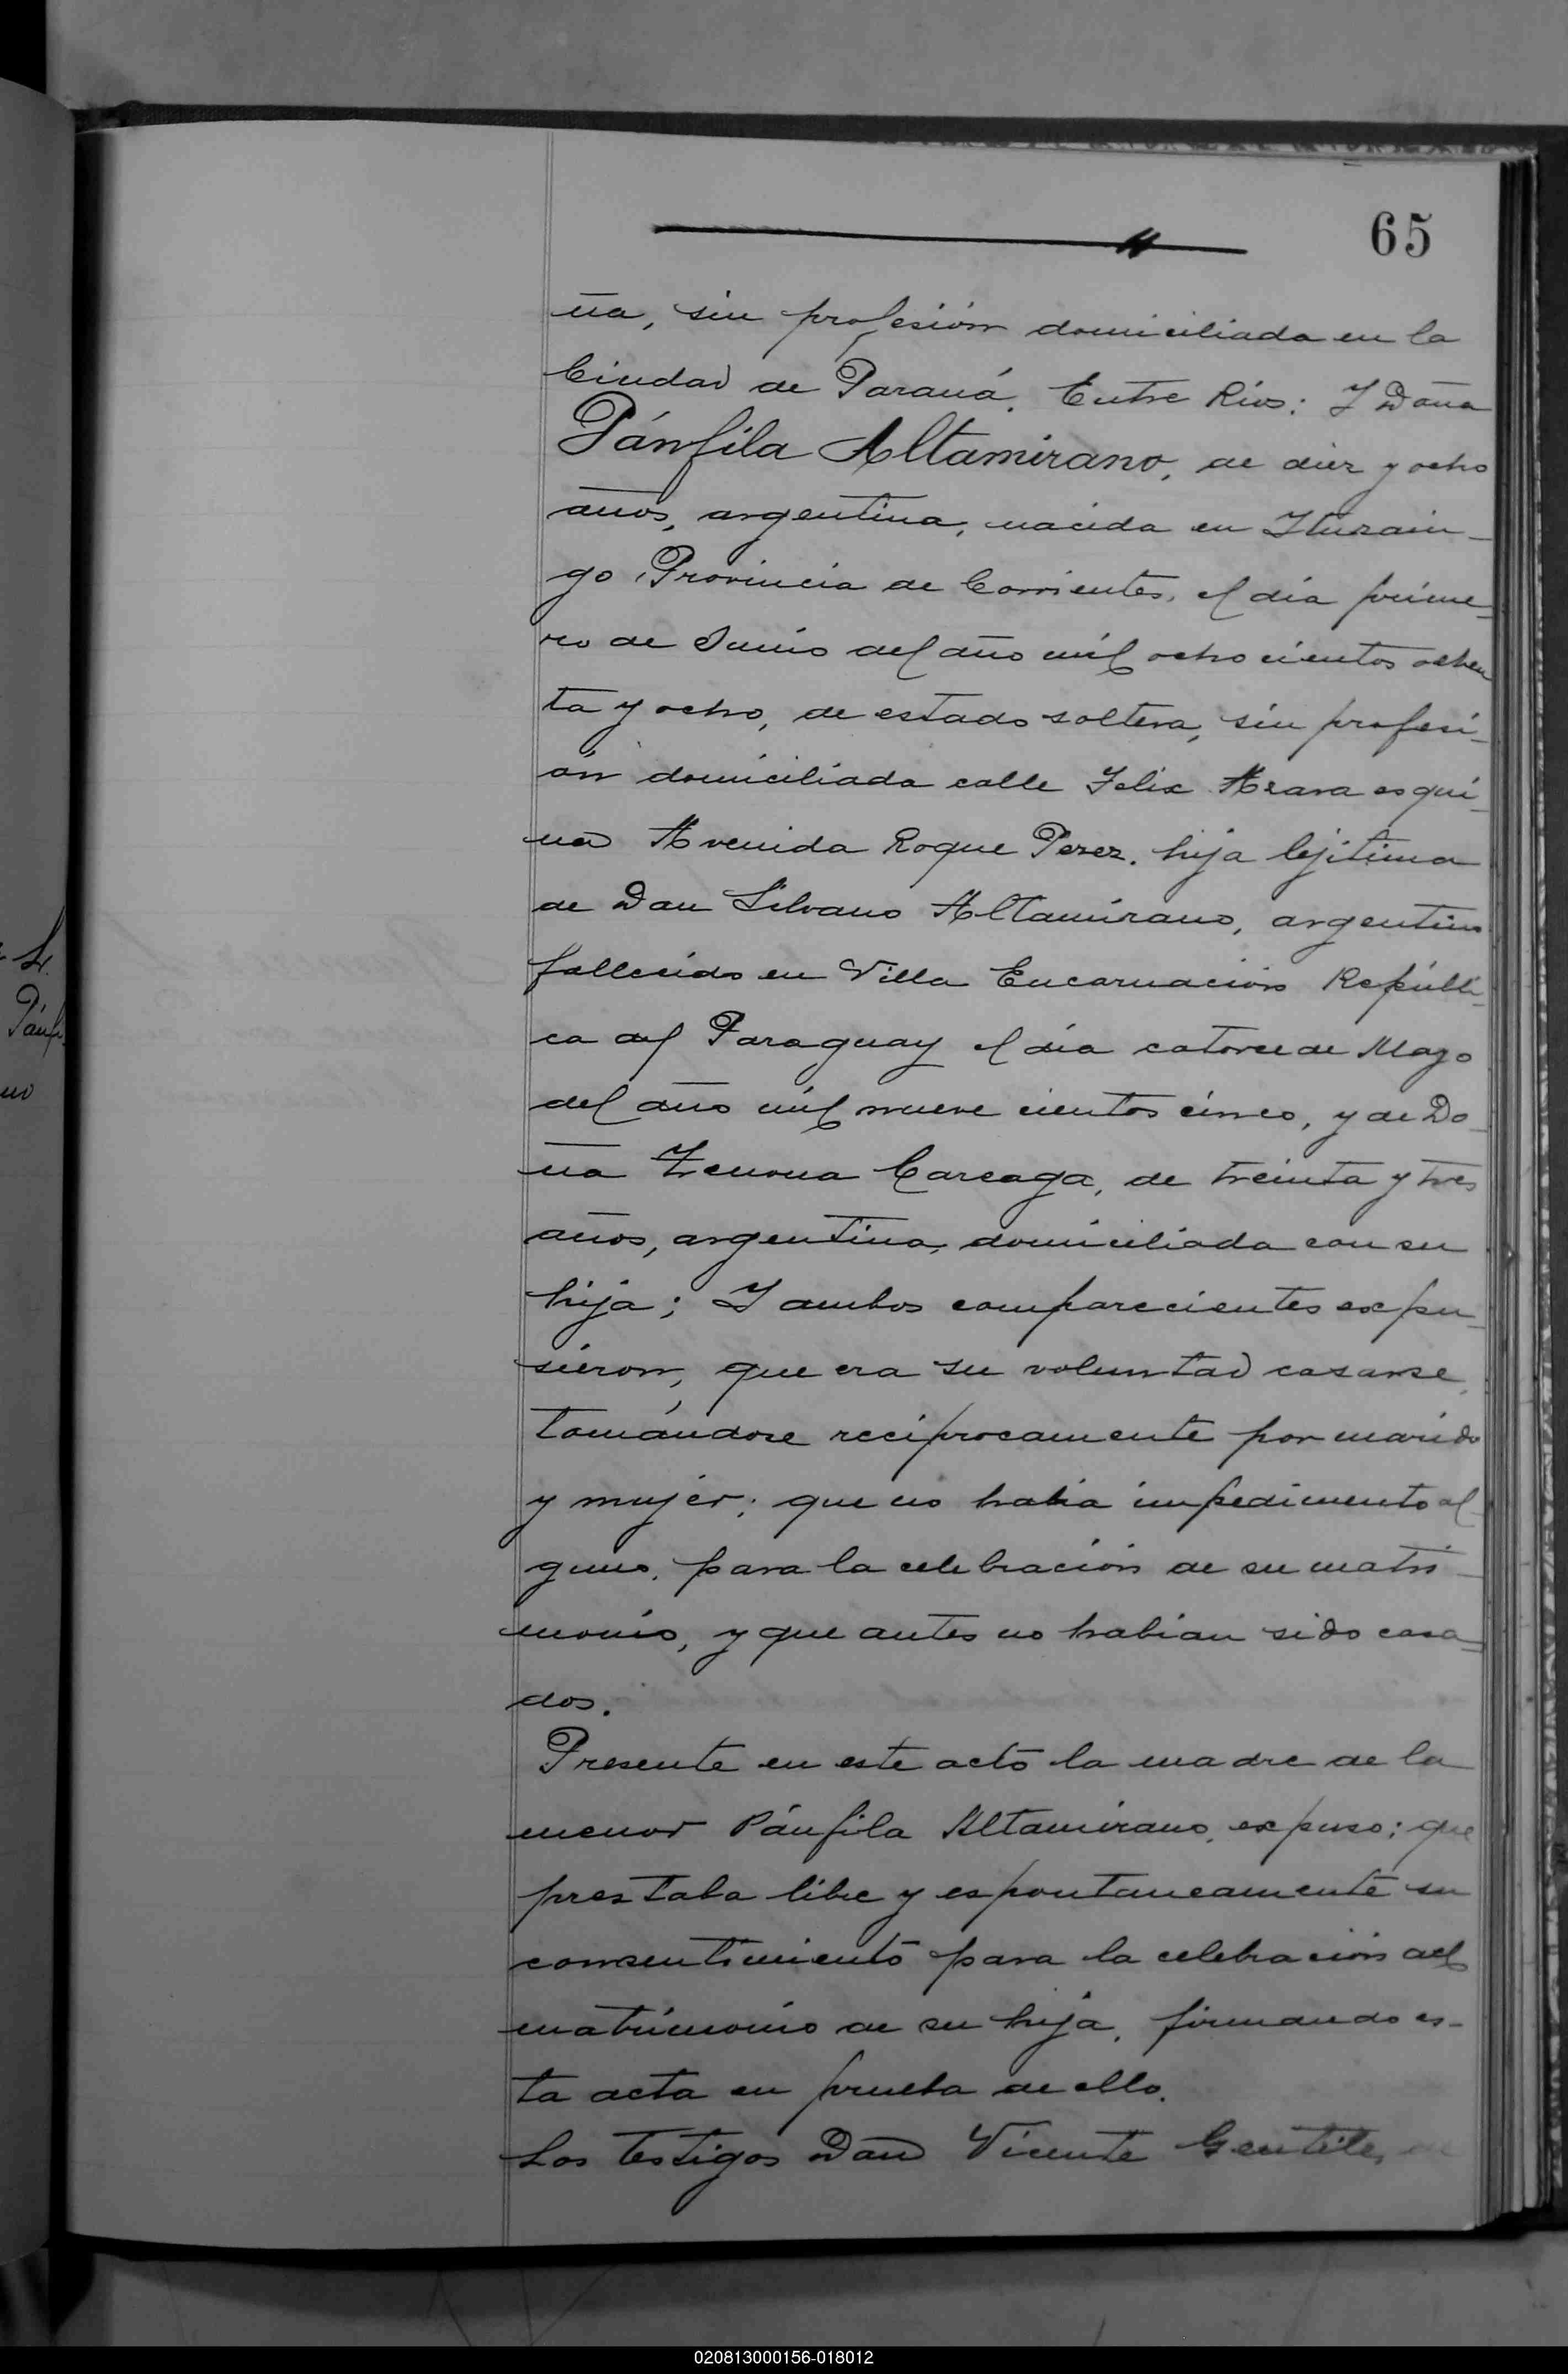 65
na, sin profesión domiciliada en la
Ciudad de Paraná. Entre Rios: Y Doña
Pánfila Altamirano, de diez y ocho
años, argentina, nacida en Ituzain-
go, Provincia de Corrientes, el día prime-
ro de Junio del año mil ochocientos ochen
ta y ocho, de estado soltera, sin profesi-
ón domiciliada calle Felix Azara esqui-
na Avenida Roque Perez. hija lejitima
de Don Silvano Altamirano, argentino
fallecido en Villa Encarnación Repúbli-
ca del Paraguay el día catorce de Mayo
del año mil nueve cientos cinco, y de Do-
ña Zenona Careaga, de treinta y tres
años, argentina, domiciliada con su
hija; Y ambos comparecientes expu-
sieron, que era su voluntad casarse,
tomándose recíprocamente por marido
y mujer; que no habia impedimento al-
guno, para la celebración de su matri-
monio, y que antes no habian sido casa-
dos.
Presente en este acto la madre de la
menor Pánfila Altamirano, expuso; que
prestaba libre y espontaneamente su
consentimiento para la celebración del
matrimonio de su hija, firmando es-
ta acta en prueba de ello.
Los testigos Don Vicente Gentile,
020813000156-018012